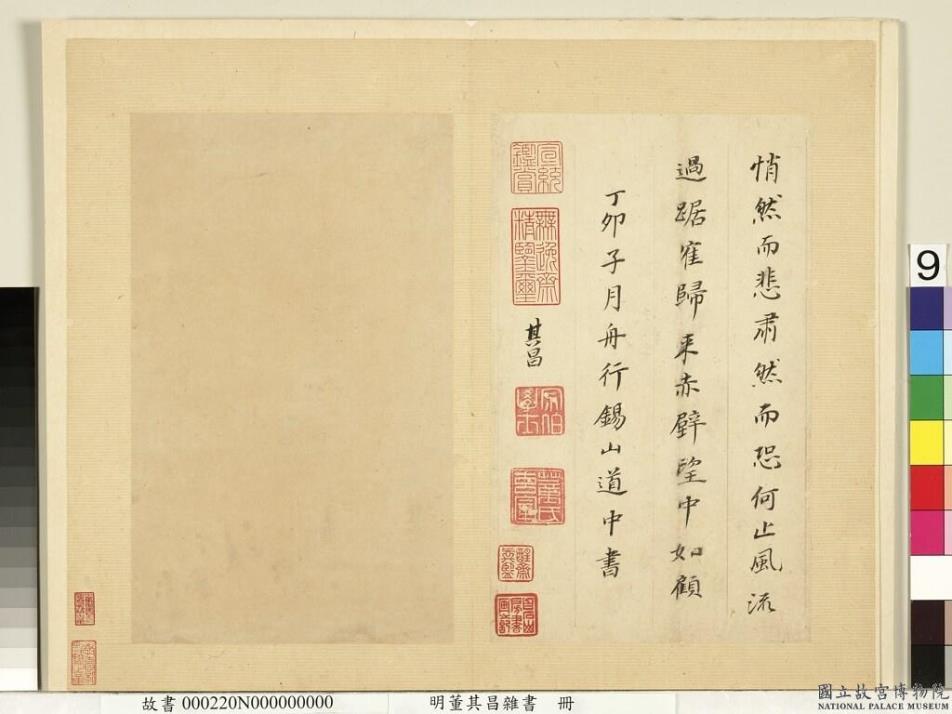 悄然而悲肅然而恐何止風流
過踞寉歸来赤壁望中如顧
丁卯子月舟行錫山道中書
宣統鑑賞
無逸齋精鑒璽
其昌
宗伯學士
董氏玄宰
9
故書 000220N000000000
明董其昌雜書 冊
國立故宮博物院
NATIONAL PALACE MUSEUM